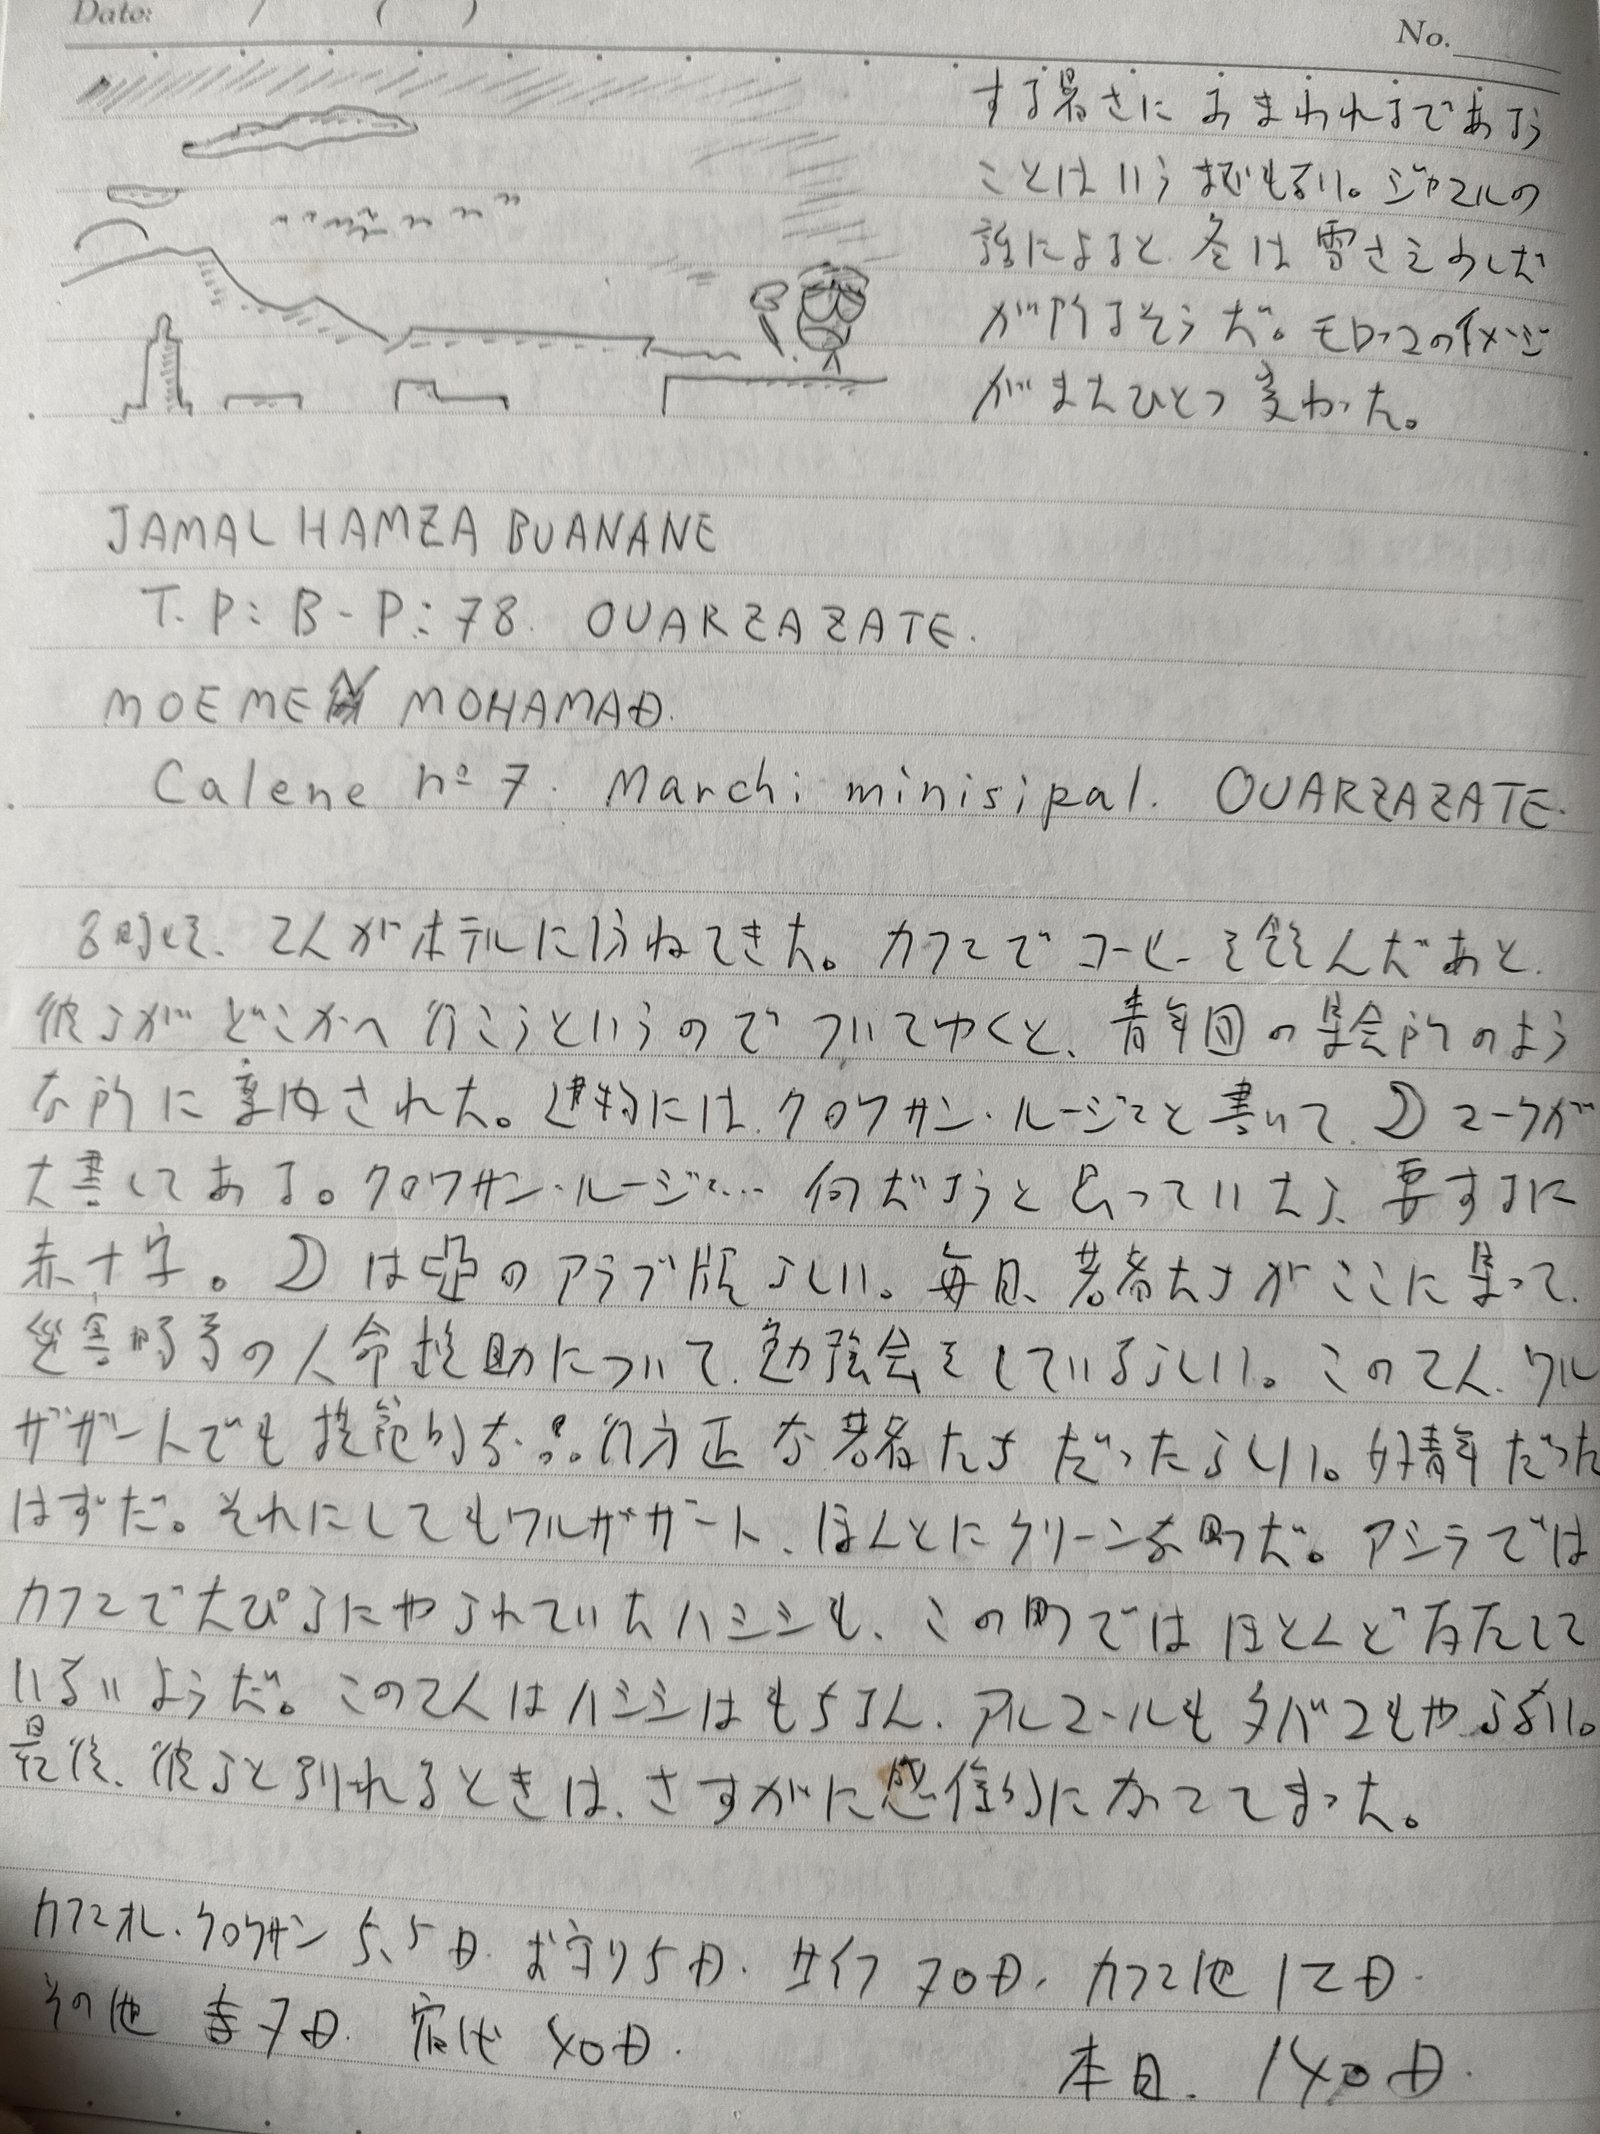 Date: / ( )
No.
する暑さにみまわれるであろう
ことはいうまでもない。ジャマルの
話によると、冬は雪さえめしだ
が降るそうだ。モロッコのイメージ
がまたひとつ変わった。
JAMAL HAMZA BUANANE
T.P: B-P: 78. OUARZAZATE.
MOEME MOHAMAD.
Calene nº 7. Marchi minisipal. OUARZAZATE.
8時頃、2人がホテルに訪ねてきた。カフェでコーヒーを飲んだあと、
彼らがどこかへ行こうというのでついてゆくと、青年団の集会所のよう
な所に案内された。建物には、クロワサン・ルージュと書いて、☽マークが
大書してある。クロワサン・ルージュ… 何だろうと思っていたら、要するに
赤十字。☽は十のアラブ版らしい。毎日、若者たちがここに集って、
災害時等の人命救助について、勉強会をしているらしい。この2人、ワル
ザザートでも模範的な品行方正な若者たちだったらしい。好青年だった
はずだ。それにしてもワルザザート、ほんとにクリーンな町だ。アシラでは
カフェで大ぴらにやられていたハシシも、この町ではほとんど存在して
いないようだ。この2人はハシシはもちろん、アルコールもタバコもやらない。
最後、彼らと別れるときは、さすがに感傷的になってしまった。
カフェオレ・クロワサン 5.5D. お守り5D. サイフ 70D. カフェ他 12D.
その他 7D. 宿代 40D.
本日. 140D.